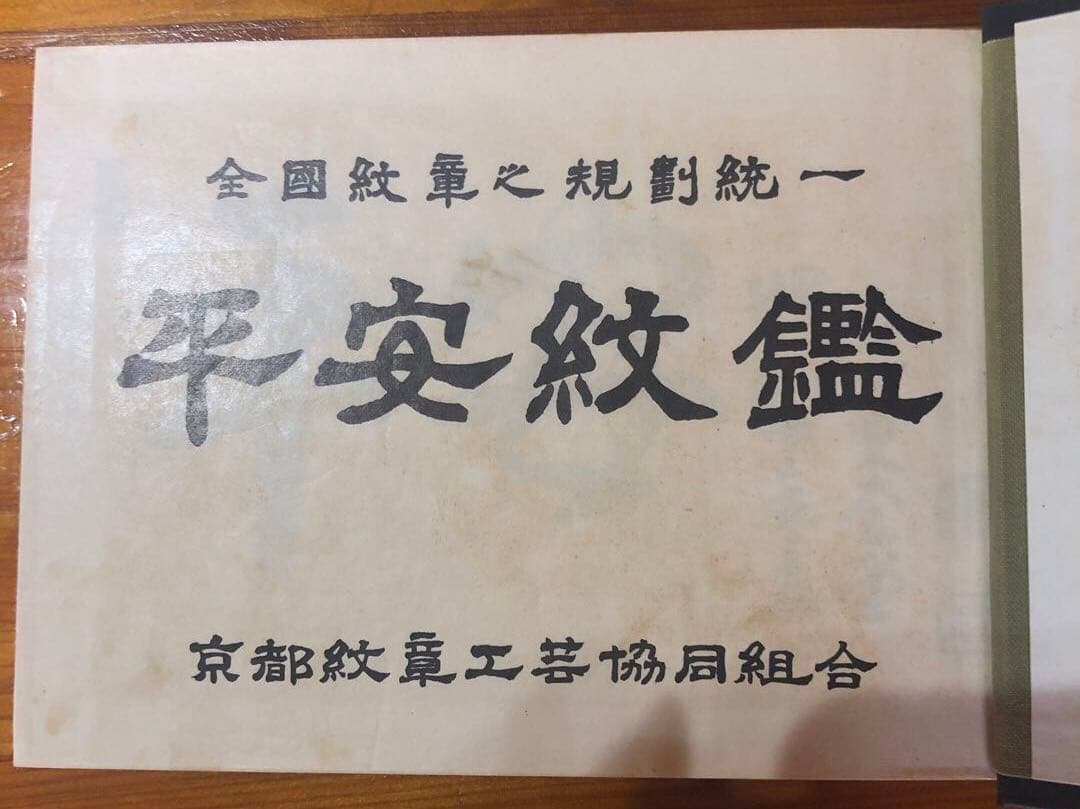 全國紋章之規劃統一
平安紋鑑
京都紋章工芸協同組合